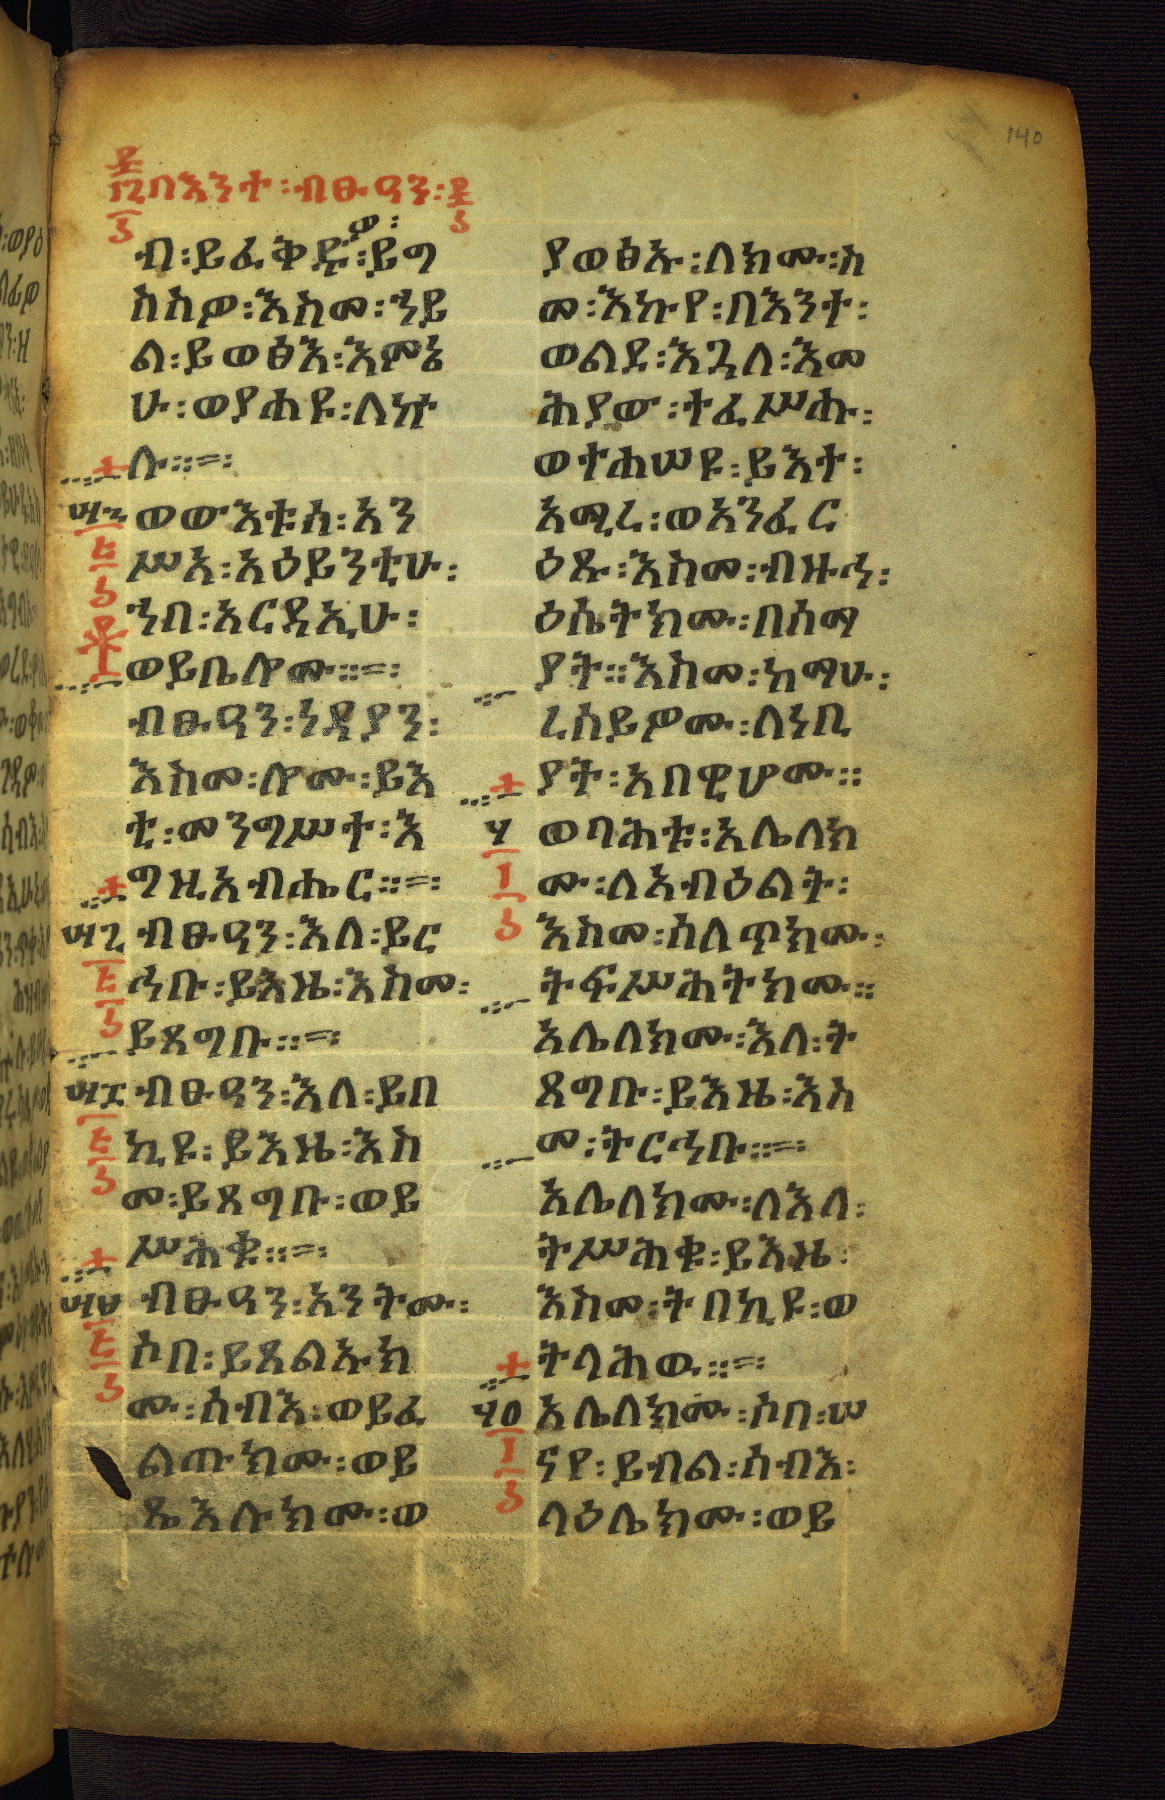 140
በእንተ፡ብፁዓን፡
ው፡
ብ፡ይፈቅዱ፡ይግ
ስስዎ፡እስመ፡ኀይ
ል፡ይወፅእ፡እምኔ
ሁ፡ወያሐዩ፡ለኵ
ሉ።=፡
ወውእቱሰ፡አን
ሥአ፡አዕይንቲሁ፡
ኀበ፡አርዳኢሁ፡
ወይቤሎሙ።=፡
ብፁዓን፡ነዳያን፡
እስመ፡ሎሙ፡ይእ
ቲ፡መንግሥተ፡እ
ግዚአብሔር።=፡
ብፁዓን፡እለ፡ይር
ኅቡ፡ይእዜ፡እስመ፡
ይጸግቡ።=፡
ብፁዓን፡እለ፡ይበ
ኪዩ፡ይእዜ፡እስ
መ፡ይጸግቡ፡ወይ
ሥሕቁ።=፡
ብፁዓን፡አንትሙ፡
ሶበ፡ይጸልኡክ
ሙ፡ሰብእ፡ወይፈ
ልጡክሙ፡ወይ
ጼእሉክሙ፡ወ
ያወፅኡ፡ለክሙ፡ስ
መ፡እኩየ፡በእንተ፡
ወልደ፡እጓለ፡እመ
ሕያው፡ተፈሥሑ፡
ወተሐሠዩ፡ይእተ፡
አሚረ፡ወአንፈር
ዕጹ፡እስመ፡ብዙኅ፡
ዕሴትክሙ፡በሰማ
ያት።እስመ፡ከማሁ፡
ረሰይዎሙ፡ለነቢ
ያት፡አበዊሆሙ።
ወባሕቱ፡አሌለክ
ሙ፡ለአብዕልት፡
እስመ፡ሰለጥክሙ፡
ትፍሥሕትክሙ።
አሌለክሙ፡እለ፡ት
ጸግቡ፡ይእዜ፡እስ
መ፡ትርኅቡ።=፡
አሌለክሙ፡ለእለ፡
ትሥሕቁ፡ይእዜ፡
እስመ፡ትበኪዩ፡ወ
ትላሕዉ።=፡
አሌለክሙ፡ሶበ፡ሠ
ናየ፡ይብል፡ሰብእ፡
ላዕሌክሙ፡ወይ